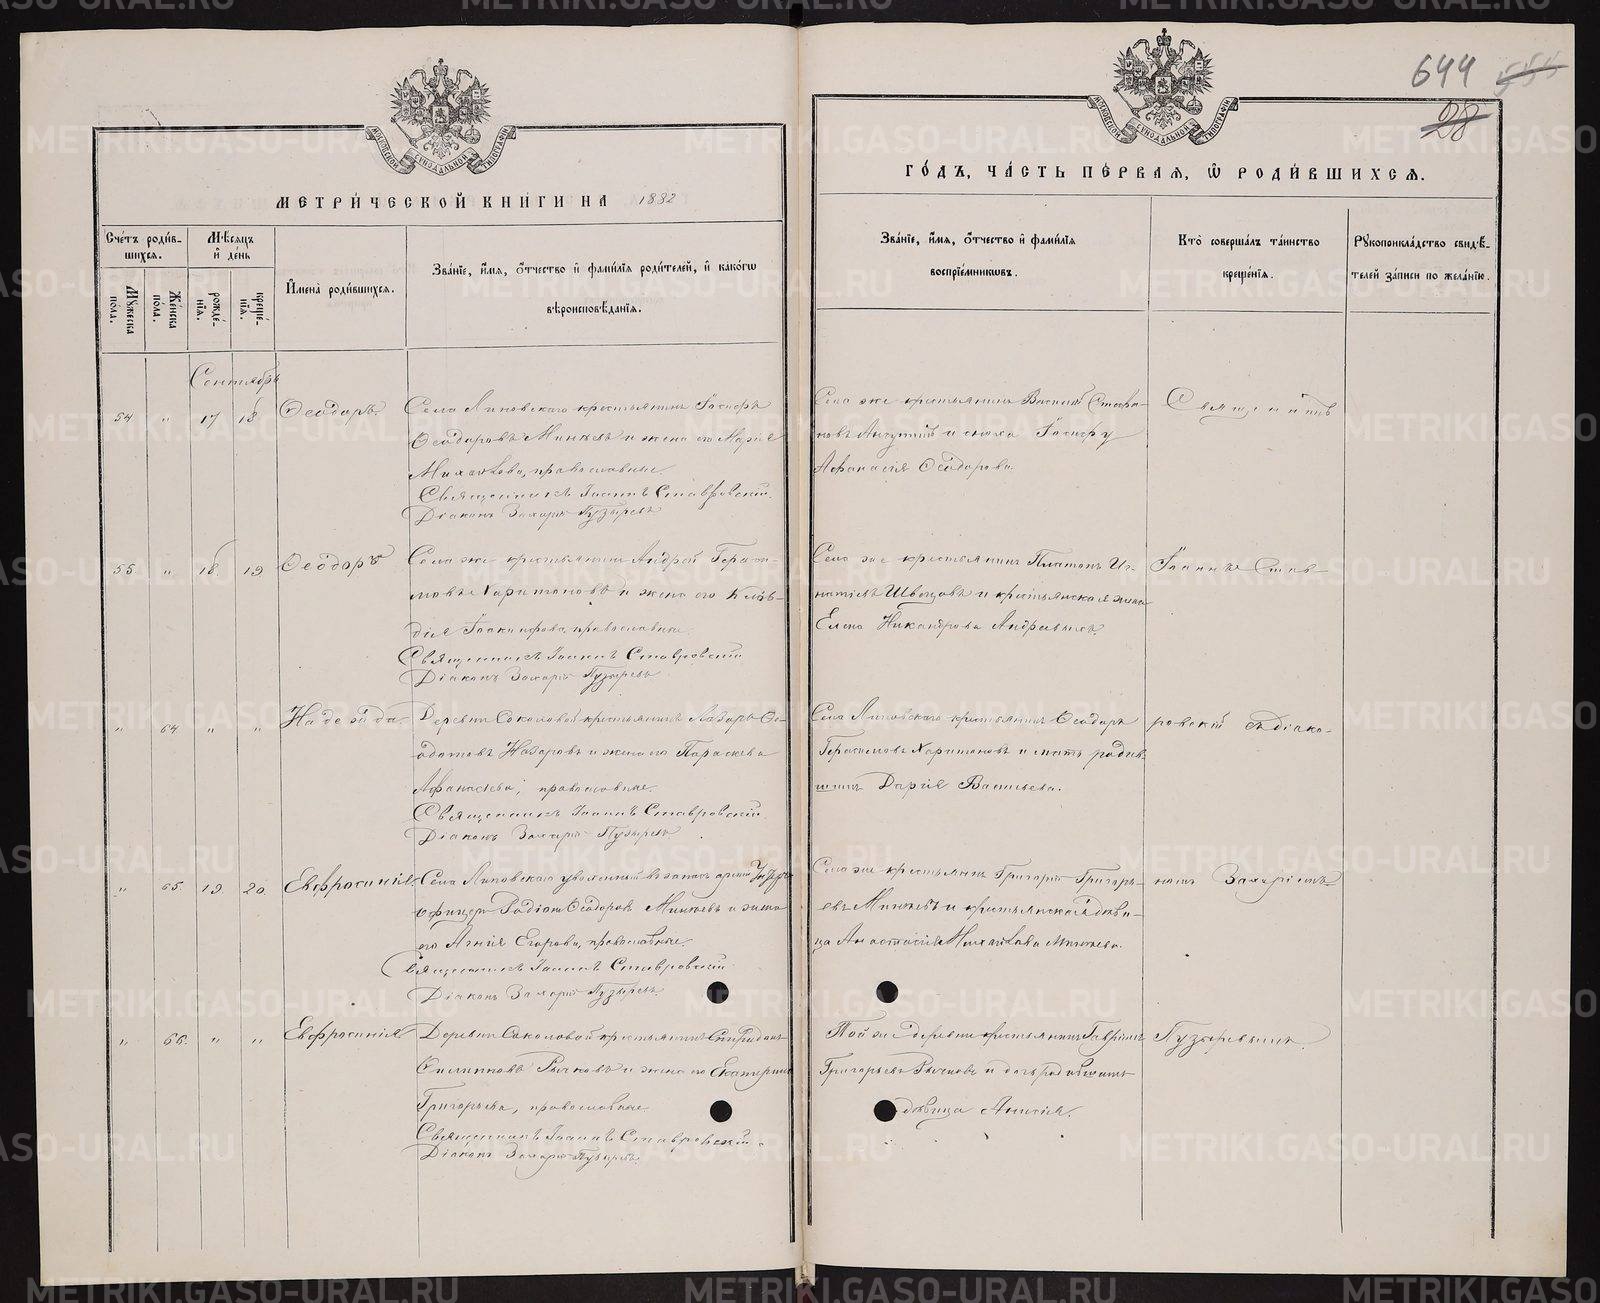 644
28
МЕТРИЧЕСКОЙ КНИГИ НА 1882
ГОДЪ, ЧАСТЬ ПЕРВАЯ, Ѡ РОДИВШИХСЯ.
МОСКОВСКОЙ СѴНОДАЛЬНОЙ ТИПОГРАФІИ
МОСКОВСКОЙ СѴНОДАЛЬНОЙ ТИПОГРАФІИ
Счетъ родив-
шихся.
Мужеска пола.
Женска пола.
Мѣсяцъ и день
рожде-
нія.
креще-
нія.
Имена родившихся.
Званіе, имя, отчество и фамилія родителей, и какогѡ
вѣроисповѣданія.
Званіе, имя, отчество и фамилія
воспріемникѡвъ.
Кто совершалъ таинство
крещенія.
Рукоприкладство свидѣ-
телей записи по желанію.
Сентябрь
54 " 17 18 Ѳеодоръ.
Села Липовскаго крестьянинъ Іосифъ
Ѳеодоровъ Минѣевъ и жена его Марія
Михайлова, православные.
Священникъ Іоаннъ Ставровскій.
Діаконъ Захарій Пузыревъ
Села же крестьянинъ Василій Стефа-
новъ и сноха Іосифу
Афанасія Ѳеодорова.
Священникъ
55 " 18 19 Ѳеодоръ
Села же крестьянинъ Андрей Гераси-
мовъ Харитоновъ и жена его Клав-
дія Іоакинфова, православные.
Священникъ Іоаннъ Ставровскій
Діаконъ Захарій Пузыревъ
Села же крестьянинъ Платонъ Иг-
натіевъ Швецовъ и крестьянская жена
Елена Никандрова
Іоаннъ Став-
" 64 " " Надежда.
Деревни Соколовой крестьянинъ Лазарь Ѳе-
Назаровъ и жена его Параскева
Афанасьева, православные.
Священникъ Іоаннъ Ставровскій
Діаконъ Захарій Пузыревъ
Села Липовскаго крестьянинъ Ѳеодоръ
Герасимовъ Харитоновъ и мать родив-
шихъ Дарія Васильева.
ровскій съ діако-
" 65 19 20 Евфросинія.
Села Липовскаго уволенный въ запасъ арміи Унтеръ
офицеръ Родіонъ Ѳеодоровъ Минѣевъ и жена
его Агнія Егорова, православные.
Священникъ Іоаннъ Ставровскій
Діаконъ Захарій Пузыревъ
Села же крестьянинъ Григорій Григорь-
евъ Минѣевъ и крестьянская дѣви-
ца Анастасія Михайлова Минѣева.
номъ Захаріемъ
" 66. " " Евфросинія
Деревни Соколовой крестьянинъ Спиридонъ
Филипповъ Рычковъ и жена его Екатерина
Григорьева, православные.
Священникъ Іоаннъ Ставровскій.
Діаконъ Захарій Пузыревъ.
Той же деревни крестьянинъ Гавріилъ
Григорьевъ Рычковъ и дочь родившихъ
дѣвица Анисія.
Пузыревымъ.
METRIKI.GASO-URAL.RU